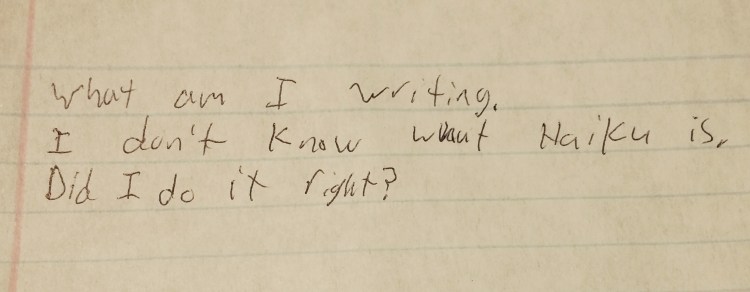 What am I writing.
I don't know what Haiku is.
Did I do it right?